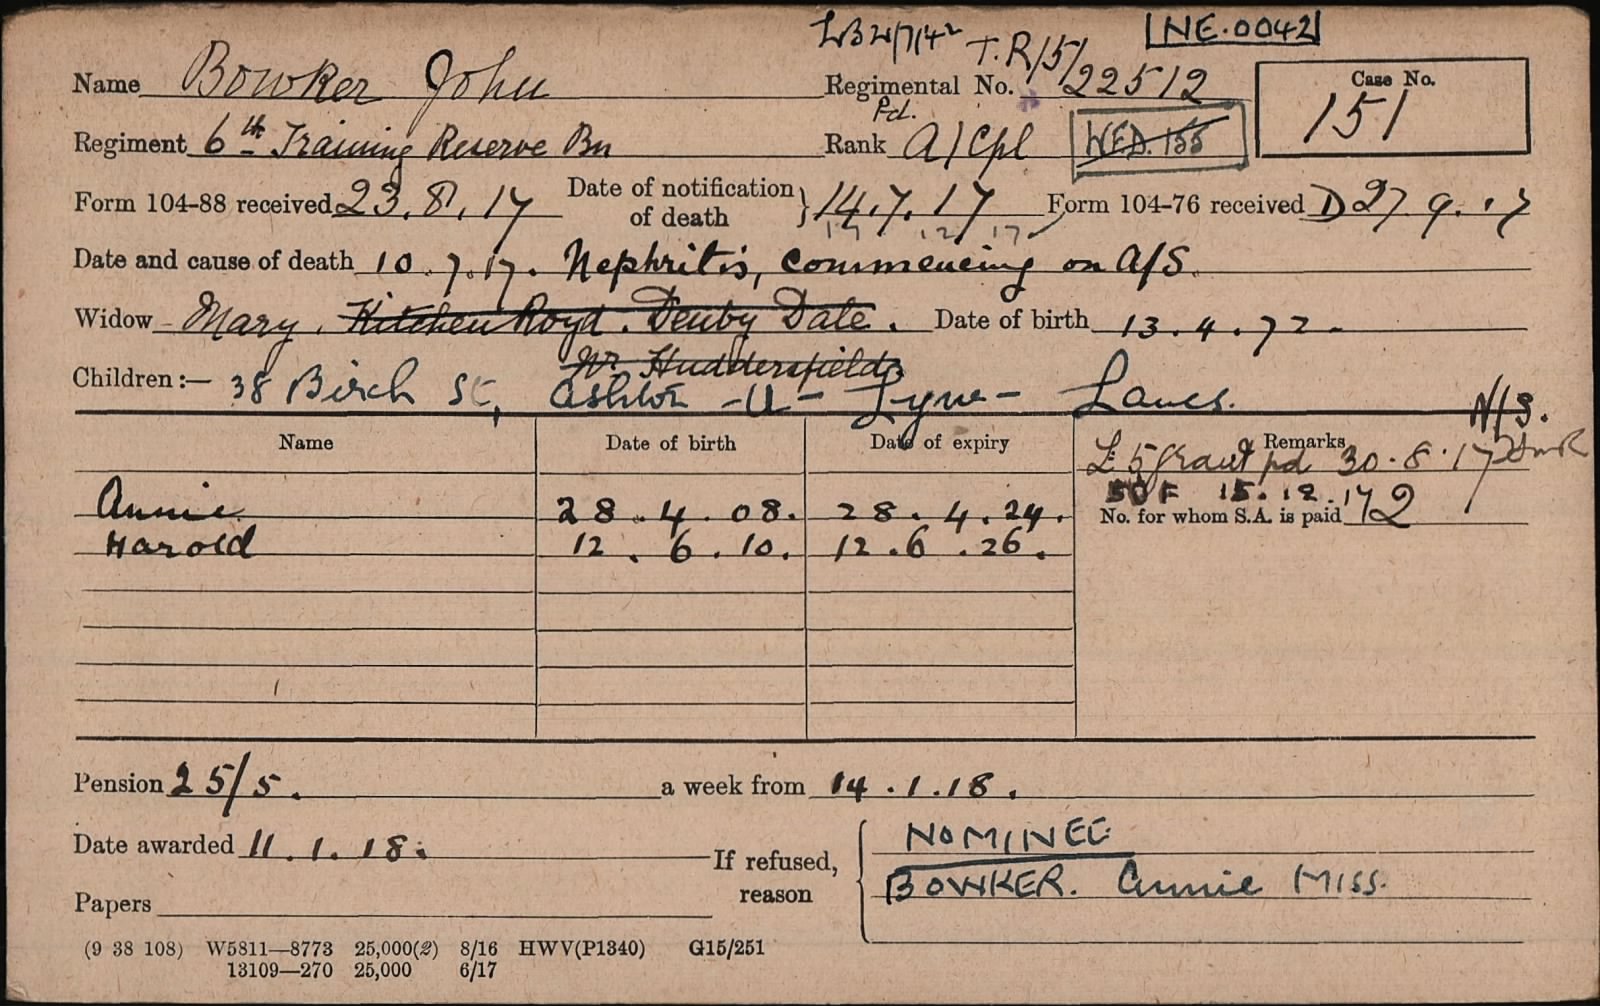 LB 21/7/42 T.R/5/ NE.0042
Name Bowker John Regimental No. 22512 Case No. 151
Regiment 6th Training Reserve Bn Rank Pd. A/Cpl W.E.D. 155
Form 104-88 received 23.8.17 Date of notification of death } 14.7.17 Form 104-76 received D 27.9.17
17 12 17
Date and cause of death 10.7.17. Nephritis, commencing on A/S.
Widow Mary. Kitchen Royd. Denby Dale. Date of birth 13.4.72.
Nr. Huddersfield
Children:— 38 Birch St, Ashton -U- Lyne - Lancs.
N/S.
Name Date of birth Date of expiry Remarks
£5 Grant pd 30.8.17
SOF 15.12.17
No. for whom S.A. is paid 2
Annie 28.4.08. 28.4.24.
Harold 12.6.10. 12.6.26.
Pension 25/5. a week from 14.1.18.
Date awarded 11.1.18. If refused, reason { NOMINEE
BOWKER. Annie MISS.
Papers
(9 38 108) W5811—8773 25,000(2) 8/16 HWV(P1340) G15/251
13109—270 25,000 6/17